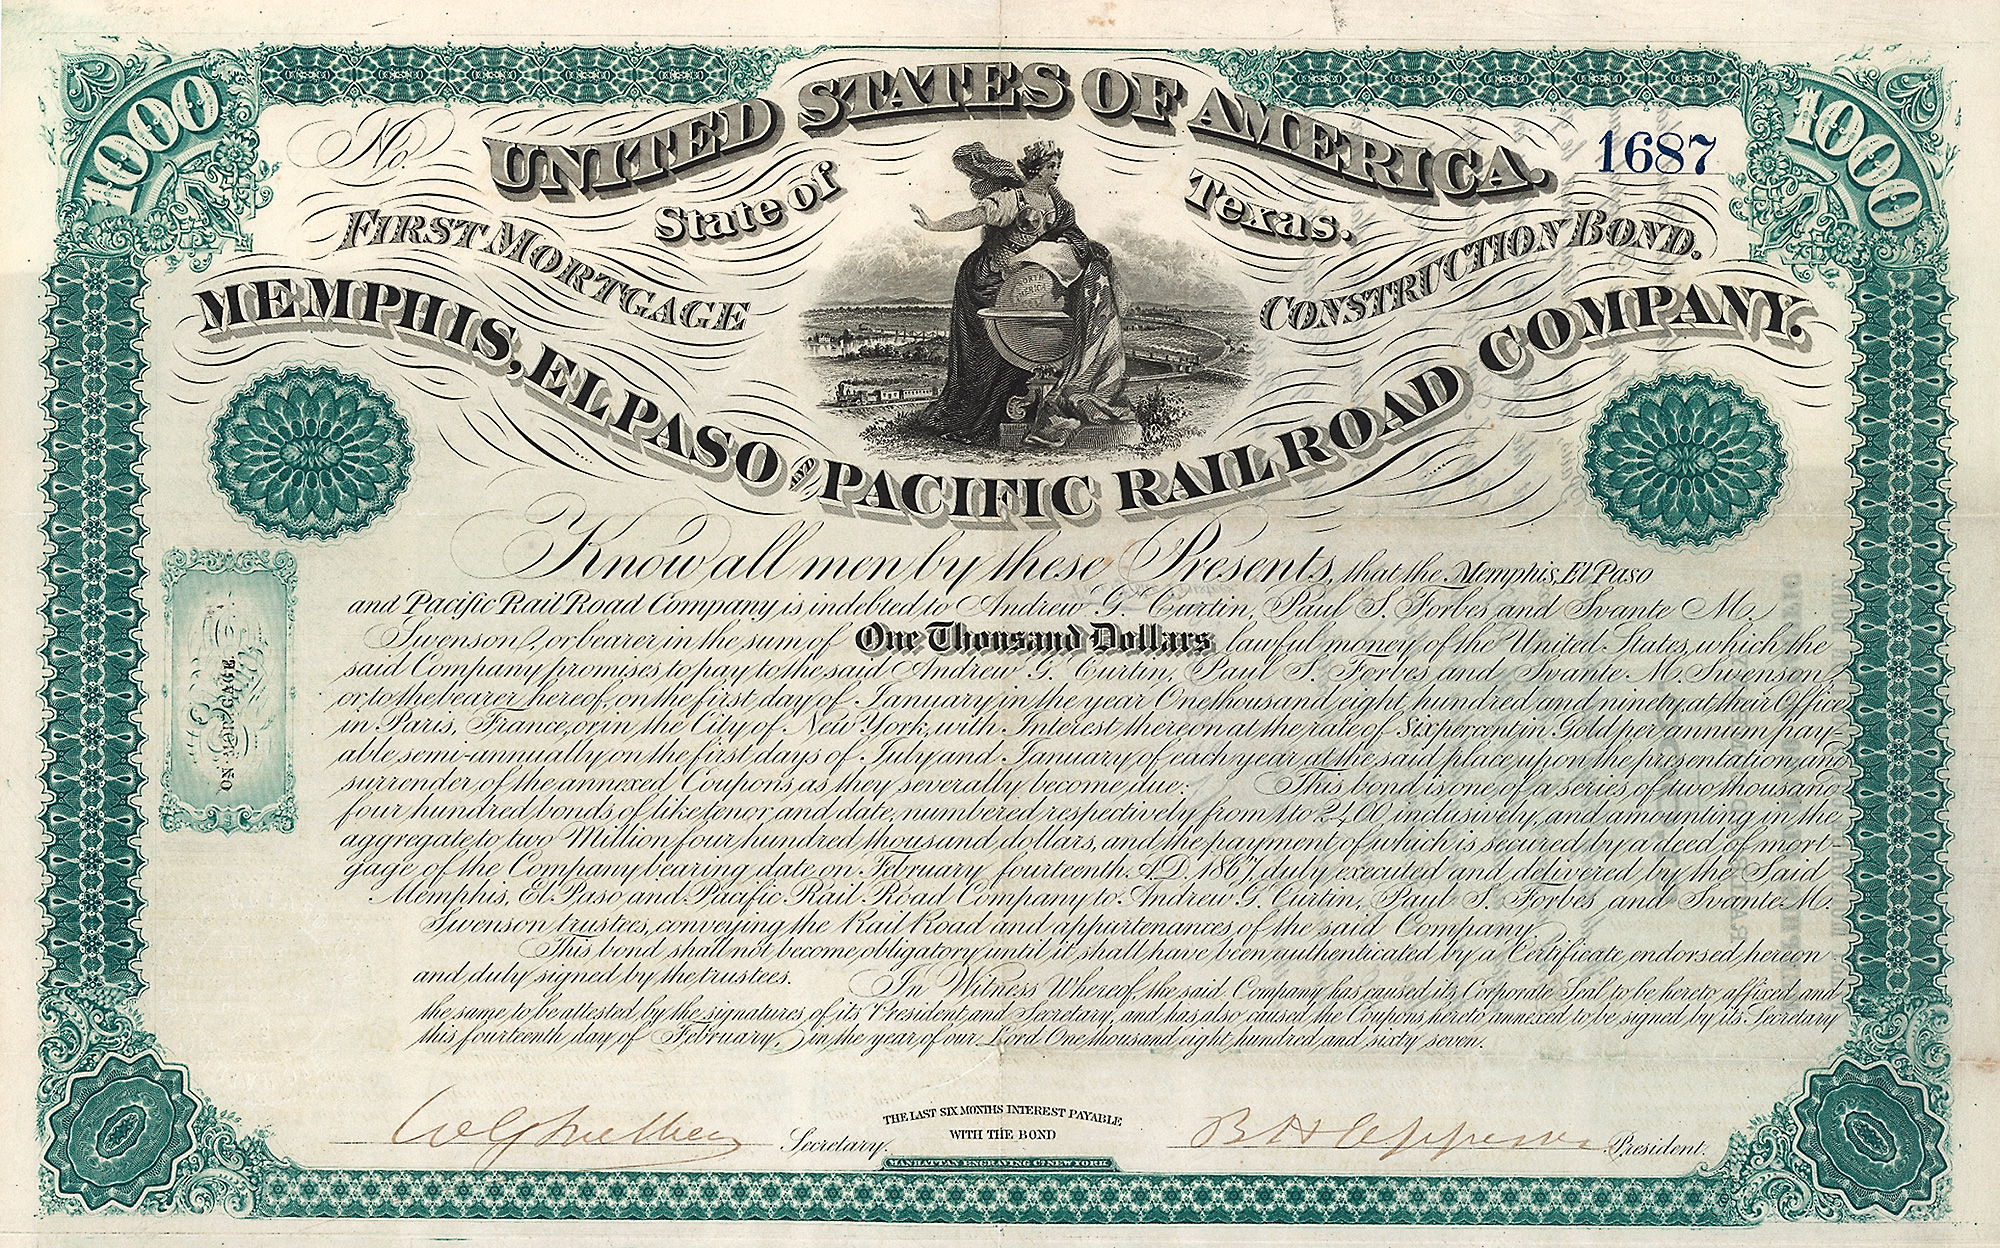 1000
1000
No.
1687
UNITED STATES OF AMERICA.
State of Texas.
FIRST MORTGAGE CONSTRUCTION BOND.
NORTH
AMERICA
MEMPHIS, EL PASO AND PACIFIC RAILROAD COMPANY.
Know all men by these Presents, that the Memphis, El Paso
and Pacific Rail Road Company is indebted to Andrew G. Curtin, Paul S. Forbes and Svante M.
Swenson, or bearer in the sum of One Thousand Dollars lawful money of the United States, which the
said Company promises to pay to the said Andrew G. Curtin, Paul S. Forbes and Svante M. Swenson
or to the bearer hereof, on the first day of January in the year One thousand eight hundred and ninety at their Office
in Paris, France, or in the City of New York, with Interest thereon at the rate of Six per cent in Gold per annum pay-
able semi-annually on the first days of July and January of each year at the said place upon the presentation and
surrender of the annexed Coupons as they severally become due: This bond is one of a series of two thousand
four hundred bonds of like tenor and date, numbered respectively from 1 to 2400 inclusively, and amounting in the
aggregate to two Million four hundred thousand dollars, and the payment of which is secured by a deed of mort-
gage of the Company bearing date on February fourteenth A.D. 1867, duly executed and delivered by the Said
Memphis, El Paso and Pacific Rail Road Company to Andrew G. Curtin, Paul S. Forbes and Svante M.
Swenson trustees, conveying the Rail Road and appurtenances of the said Company.
This bond shall not become obligatory until it shall have been authenticated by a Certificate endorsed hereon
and duly signed by the trustees. In Witness Whereof, the said Company has caused its Corporate Seal to be hereto affixed and
the same to be attested by the signatures of its President and Secretary, and has also caused the Coupons hereto annexed to be signed by its Secretary
this fourteenth day of February, in the year of our Lord One thousand eight hundred and sixty seven.
ON MORTGAGE.
Secretary.
THE LAST SIX MONTHS INTEREST PAYABLE
WITH THE BOND
President.
MANHATTAN ENGRAVING Co NEW YORK